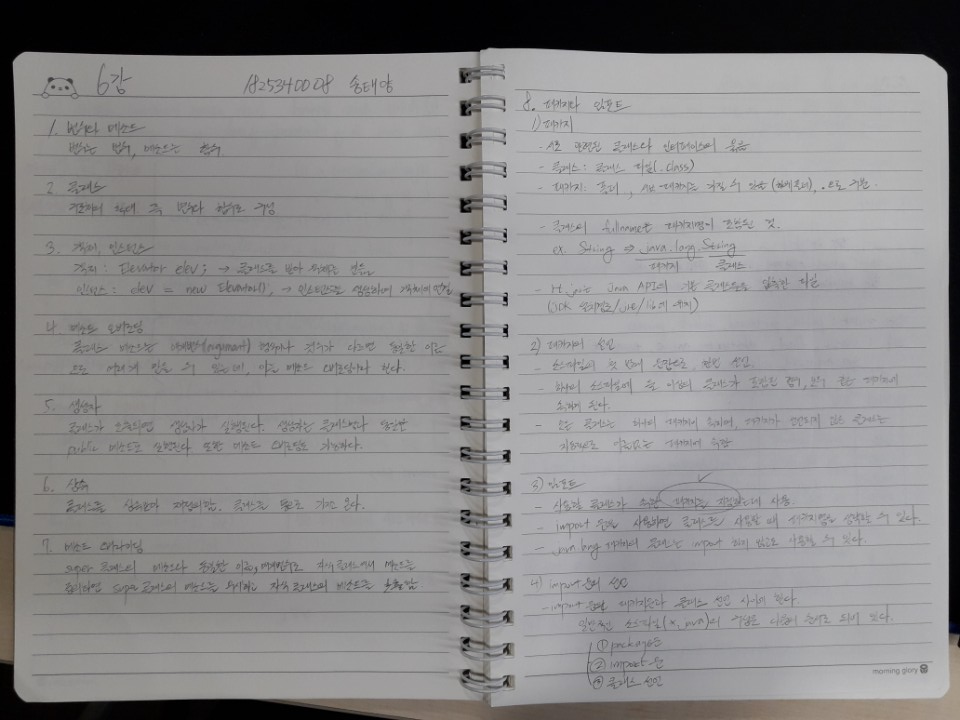 6강 182534 00 08 송태양
1. 변수와 메소드
변수는 변수, 메소드는 함수
2. 클래스
변수와 함수로 구성
3. 객체, 인스턴스
객체 : Elevator elev ; → 클래스를
인스턴스 : elev = new Elevator(); → 인스턴스를 생성하여 객체에 연결
4. 메소드 오버로딩
클래스 메소드는 매개변수(argument) 개수나 경우가 다르면 동일한 이름
으로 여러개 있을 수 있는데, 이를 메소드 오버로딩이라 한다.
5. 생성자
클래스가 생성자가 실행된다. 생성자는 클래스명과 동일한
public 메소드로 실행된다 또한 메소드 오버로딩도 가능하다.
6. 상속
클래스를 상속받아 재정의한 클래스를
7. 메소드 오버라이딩
super 클래스의 메소드와 동일한 이름, 매개변수로 자식클래스에서 메소드를
정의하면 super 클래스의 메소드를 무시하고 자식클래스의 메소드를 호출함
8. 패키지와 임포트
1) 패키지
- 서로 관련된 클래스와 인터페이스의 묶음
- 클래스 : 클래스 파일(.class)
- 패키지 : 폴더, 서브패키지를 가질 수 있음(하위폴더), .으로 구분.
- 클래스의 fullname은 패키지명이 포함된 것.
ex. String ⇒ java.lang.String
패키지 클래스
- rt.jar는 Java API의 기본 클래스들을 압축한 파일
(JDK 설치경로/jre/lib에 위치)
2) 패키지의 선언
- 소스파일의 첫 번째 문장으로 단 한번 선언.
- 하나의 소스파일에 둘 이상의 클래스가 포함된 경우, 모두 같은 패키지에
속하게 된다.
- 모든 클래스는 하나의 패키지에 속하며, 패키지가 선언되지 않은 클래스는
자동으로 이름없는 패키지에 속함
3) 임포트
- 사용할 클래스가 속한 패키지를 지정하는데 사용
- import문을 사용하면 클래스를 사용할 때 패키지명을 생략할 수 있다.
- java.lang 패키지의 클래스는 import 하지 않고도 사용할 수 있다.
4) import문의 선언
- import문은 패키지문과 클래스 선언 사이에 한다.
일반적인 소스파일(*.java)의 구성은 다음의 순서로 되어 있다.
① package문
② import 문
③ 클래스 선언
morning glory